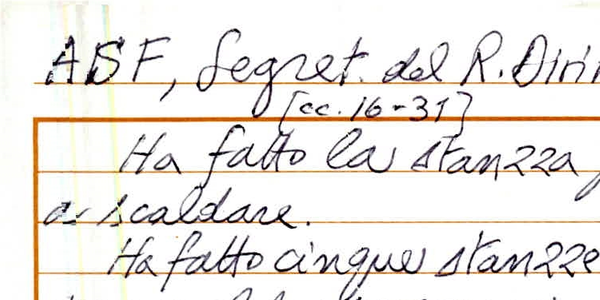 ASF, Segret. del R. Diri
[cc. 16-31]
Ha fatto la stanzza
a scaldare.
Ha fatto cinque stanzze